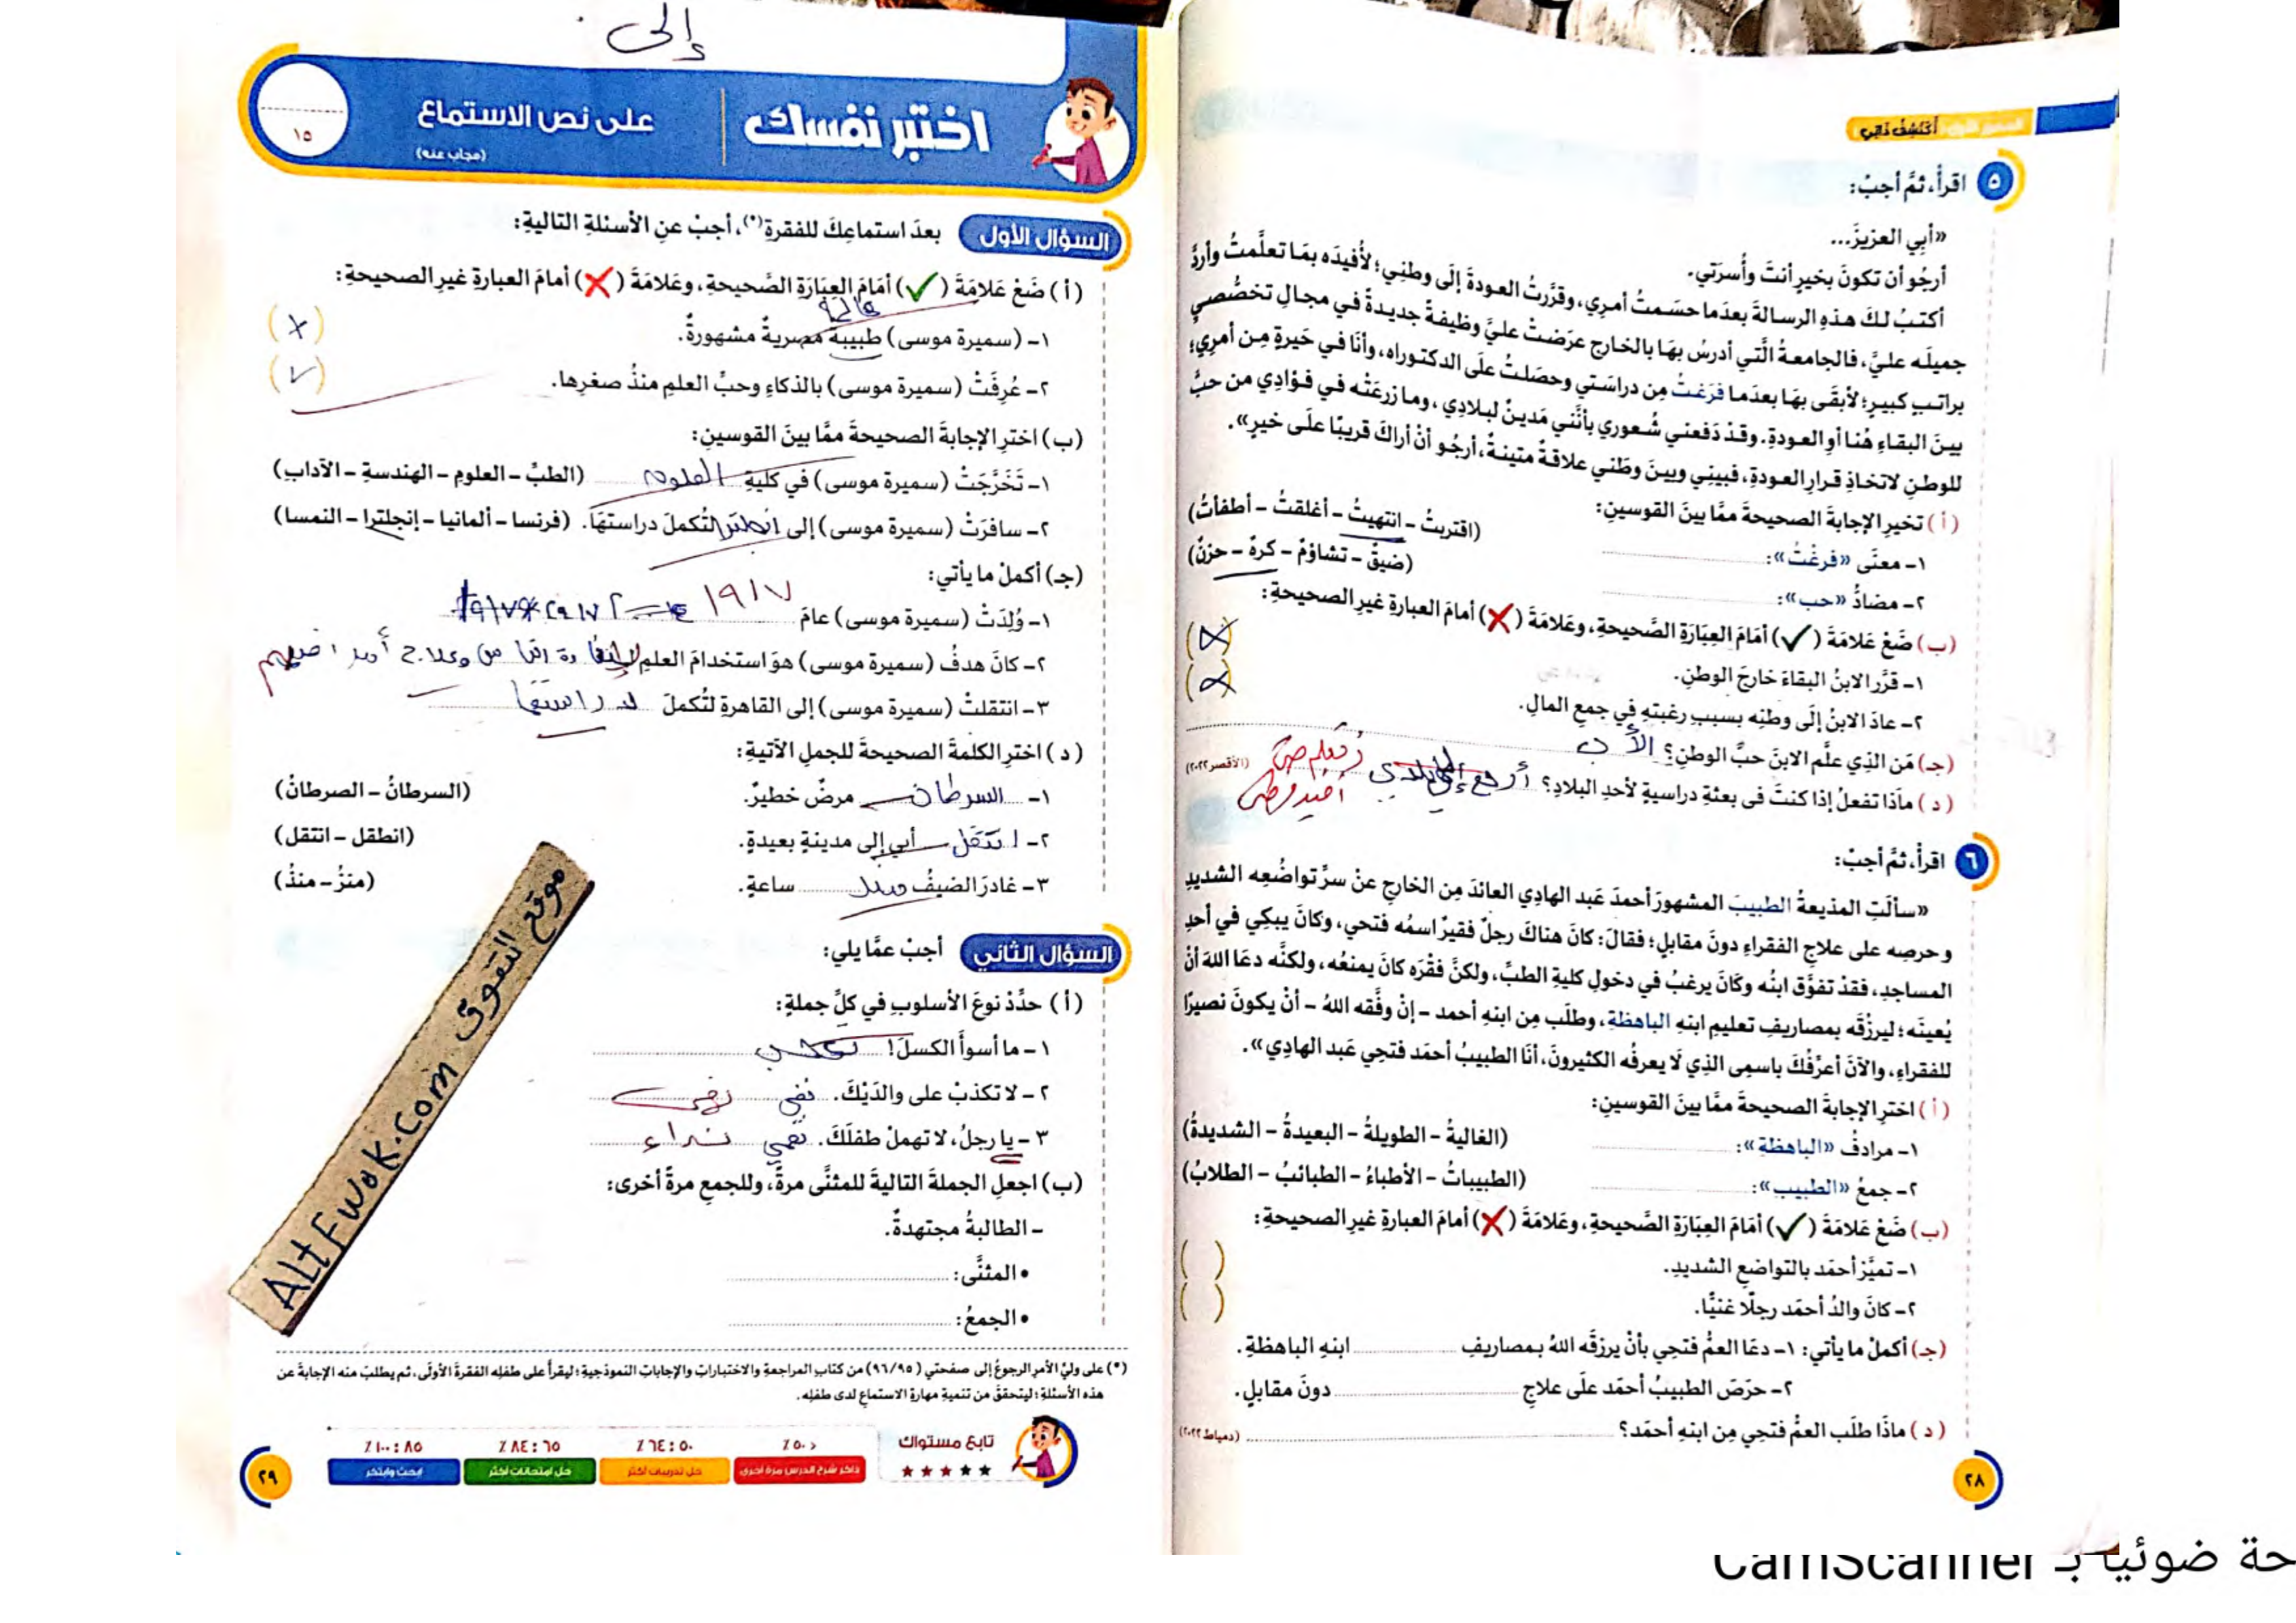 أكتشف ذاتي
٥ اقرأ، ثمَّ أجبْ:
«أبِي العزيزَ...
أرجُو أن تكونَ بخيرٍ أنتَ وأُسرَتي.
أكتبُ لكَ هذهِ الرسالةَ بعدَما حسَمتُ أمرِي، وقرَّرتُ العودةَ إلَى وطنِي؛ لأُفيدَه بمَا تعلَّمتُ وأردَّ
جميلَه عليَّ، فالجامعةُ الَّتي أدرسُ بهَا بالخارجِ عرَضتْ عليَّ وظيفةً جديدةً في مجالِ تخصُّصي
براتبٍ كبيرٍ؛ لأبقَى بهَا بعدَما فرَغتُ مِن دراسَتي وحصَلتُ علَى الدكتوراه، وأنَا في حَيرةٍ مِن أمرِي؛
بينَ البقاءِ هُنا أوِ العودةِ. وقدْ دَفعني شُعوري بأنَّني مَدينٌ لبلادِي، وما زرعَتْه في فؤادِي من حبٍّ
للوطنِ لاتخاذِ قرارِ العودةِ، فبينِي وبينَ وطَني علاقةٌ متينةٌ، أرجُو أنْ أراكَ قريبًا علَى خيرٍ».
(أ) تخيرِ الإجابةَ الصحيحةَ ممَّا بينَ القوسينِ:
١- معنَى «فرغْتُ»: (اقتربتُ - انتهيتُ - أغلقتُ - أطفأتُ)
٢- مضادُّ «حب»: (ضيقٌ - تشاؤمٌ - كرهٌ - حزنٌ)
(ب) ضَعْ عَلامَةَ (✓) أمَامَ العِبَارَةِ الصَّحيحةِ، وعَلامَةَ (✗) أمامَ العبارةِ غيرِ الصحيحةِ:
١- قرَّر الابنُ البقاءَ خارجَ الوطنِ. (X)
٢- عادَ الابنُ إلَى وطنِه بسببِ رغبتِهِ في جمعِ المالِ. (X)
(جـ) مَن الذِي علَّم الابنَ حبَّ الوطنِ؟ الأب
(د) ماذَا تفعلُ إذا كنتَ فى بعثةٍ دراسيةٍ لأحدِ البلادِ؟ أرجع إلى بلادي (الأقصر ٢٠٢٢)
أفيد وطني
٦ اقرأ، ثمَّ أجبْ:
«سألَتِ المذيعةُ الطبيبَ المشهورَ أحمدَ عَبد الهادِي العائدَ مِن الخارجِ عنْ سرِّ تواضُعِه الشديدِ
وحرصِه على علاجِ الفقراءِ دونَ مقابلٍ؛ فقالَ: كانَ هناكَ رجلٌ فقيرٌ اسمُه فتحي، وكانَ يبكِي في أحدِ
المساجدِ، فقدْ تفوَّق ابنُه وكانَ يرغبُ في دخولِ كليةِ الطبِّ، ولكنَّ فقْرَه كانَ يمنعُه، ولكنَّه دعَا اللهَ أنْ
يُعينَه؛ ليرزُقَه بمصاريفِ تعليمِ ابنِهِ الباهظةِ، وطلَب مِن ابنِهِ أحمد - إنْ وفَّقه اللهُ - أنْ يكونَ نصيرًا
للفقراءِ، والآنَ أعرِّفُكَ باسمِى الذِي لَا يعرفُه الكثيرونَ، أنَا الطبيبُ أحمَد فتحِي عَبد الهادِي».
(أ) اخترِ الإجابةَ الصحيحةَ ممَّا بينَ القوسينِ:
١- مرادفُ «الباهظةِ»: (الغاليةُ - الطويلةُ - البعيدةُ - الشديدةُ)
٢- جمعُ «الطبيب»: (الطبيباتُ - الأطباءُ - الطبائبُ - الطلابُ)
(ب) ضَعْ عَلامَةَ (✓) أمَامَ العِبَارَةِ الصَّحيحةِ، وعَلامَةَ (✗) أمامَ العبارةِ غيرِ الصحيحةِ:
١- تميَّز أحمَد بالتواضعِ الشديدِ. ( )
٢- كانَ والدُ أحمَد رجلًا غنيًّا. ( )
(جـ) أكملْ ما يأتي: ١- دعَا العمُّ فتحِي بأنْ يرزقَه اللهُ بمصاريفِ ابنِهِ الباهظةِ.
٢- حرَصَ الطبيبُ أحمَد علَى علاجِ دونَ مقابلٍ.
(د) ماذَا طلَب العمُّ فتحِي مِن ابنِهِ أحمَد؟ (دمياط ٢٠٢٢)
٢٨
إلى
اختبر نفسك على نص الاستماع
(مجاب عنه)
١٥
السؤال الأول بعدَ استماعِكَ للفقرةِ(*)، أجبْ عنِ الأسئلةِ التاليةِ:
(أ) ضَعْ عَلامَةَ (✓) أمَامَ العِبَارَةِ الصَّحيحةِ، وعَلامَةَ (✗) أمامَ العبارةِ غيرِ الصحيحةِ:
عالمة
١- (سميرة موسى) طبيبةٌ مصريةٌ مشهورةٌ. (X)
٢- عُرِفَتْ (سميرة موسى) بالذكاءِ وحبِّ العلمِ منذُ صغرِها. (✓)
(ب) اخترِ الإجابةَ الصحيحةَ ممَّا بينَ القوسينِ:
١- تَخَرَّجَتْ (سميرة موسى) في كليةِ العلوم (الطبِّ - العلومِ - الهندسةِ - الآدابِ)
٢- سافرَتْ (سميرة موسى) إلى انجلترا لتُكملَ دراستَهَا. (فرنسا - ألمانيا - إنجلترا - النمسا)
(جـ) أكملْ ما يأتي:
١- وُلِدَتْ (سميرة موسى) عامَ ١٩١٧
٢- كانَ هدفُ (سميرة موسى) هوَ استخدامَ العلمِ
٣- انتقلتْ (سميرة موسى) إلى القاهرةِ لتُكملَ دراستها
(د) اخترِ الكلمةَ الصحيحةَ للجملِ الآتيةِ:
١- السرطان مرضٌ خطيرٌ. (السرطانُ - الصرطانُ)
٢- انتقل أبي إلى مدينةٍ بعيدةٍ. (انطقل - انتقل)
٣- غادرَ الضيفُ منذ ساعةٍ. (منزُ - منذُ)
السؤال الثاني أجبْ عمَّا يلي:
(أ) حدِّدْ نوعَ الأسلوبِ في كلِّ جملةٍ:
١- ما أسوأَ الكسلَ! تعجب
٢- لا تكذبْ على والدَيْكَ. نفي نهي
٣- يا رجلُ، لا تهملْ طفلَكَ. نهي نداء
(ب) اجعلِ الجملةَ التاليةَ للمثنَّى مرةً، وللجمعِ مرةً أخرى:
- الطالبةُ مجتهدةٌ.
• المثنَّى:
• الجمعُ:
(*) على وليِّ الأمرِ الرجوعُ إلى صفحتي (٩٥/٩٦) من كتابِ المراجعةِ والاختباراتِ والإجاباتِ النموذجيةِ؛ ليقرأَ على طفلِه الفقرةَ الأولَى، ثم يطلبَ منه الإجابةَ عن
هذه الأسئلةِ؛ ليتحققَ من تنميةِ مهارةِ الاستماعِ لدى طفلِه.
تابع مستواك
< ٥٠٪ ٥٠ : ٦٤٪ ٦٥ : ٨٤٪ ٨٥ : ١٠٠٪
ذاكر شرح الدرس مرة أخرى حل تدريبات أكثر حل امتحانات أكثر ابحث وابتكر
٢٩
موقع التفوق AltFwok.com
حة ضوئيا بـ CamScanner